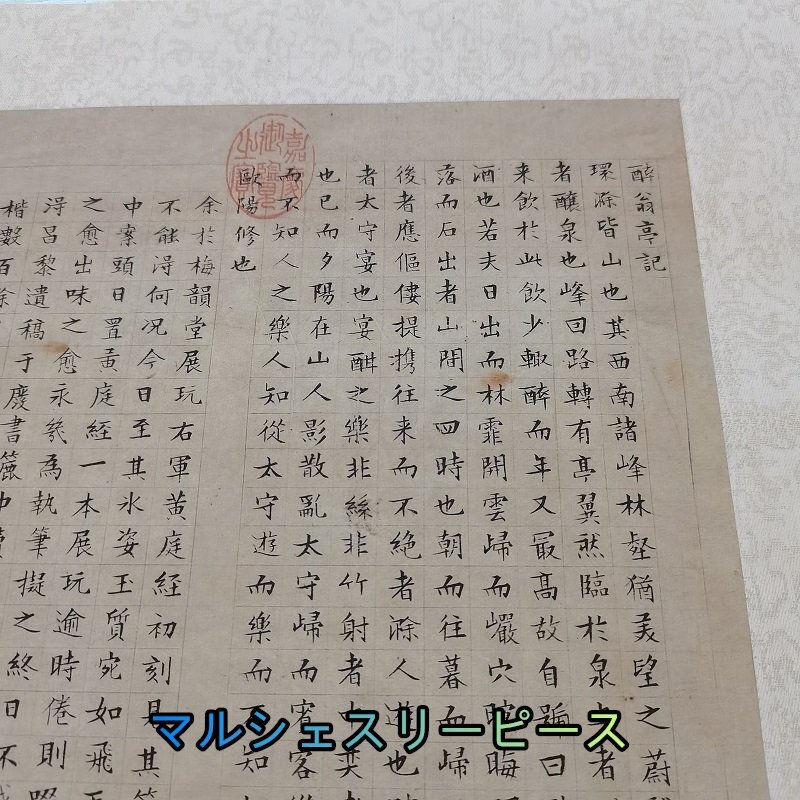 醉翁亭記
環滁皆山也其西南諸峰林壑猶美望之蔚
者釀泉也峰回路轉有亭翼然臨於泉者
来飲於此飲少輙醉而年又㝡髙故自號曰
酒也若夫日出而林霏開雲歸而巖穴暝晦
落而石出者山間之四時也朝而往暮而歸
後者應傴僂提携往来而不絶者滁人遊也
者太守宴也宴酣之樂非絲非竹射者中奕者
也已而夕陽在山人影散亂太守歸而賓客
而不知人之樂人知從太守遊而樂而不知
歐陽修也
嘉慶御覽之寶
余於梅韻堂展玩右軍黄庭經初刻見其
不能淂何况今日至其氷姿玉質宛如飛
中案頭日置黄庭經一本展玩逾時倦則
之愈出味之愈永幾為執筆擬之終日不
淂吕黎遺稿于慶書簏中
楷數百餘
マルシェスリーピース